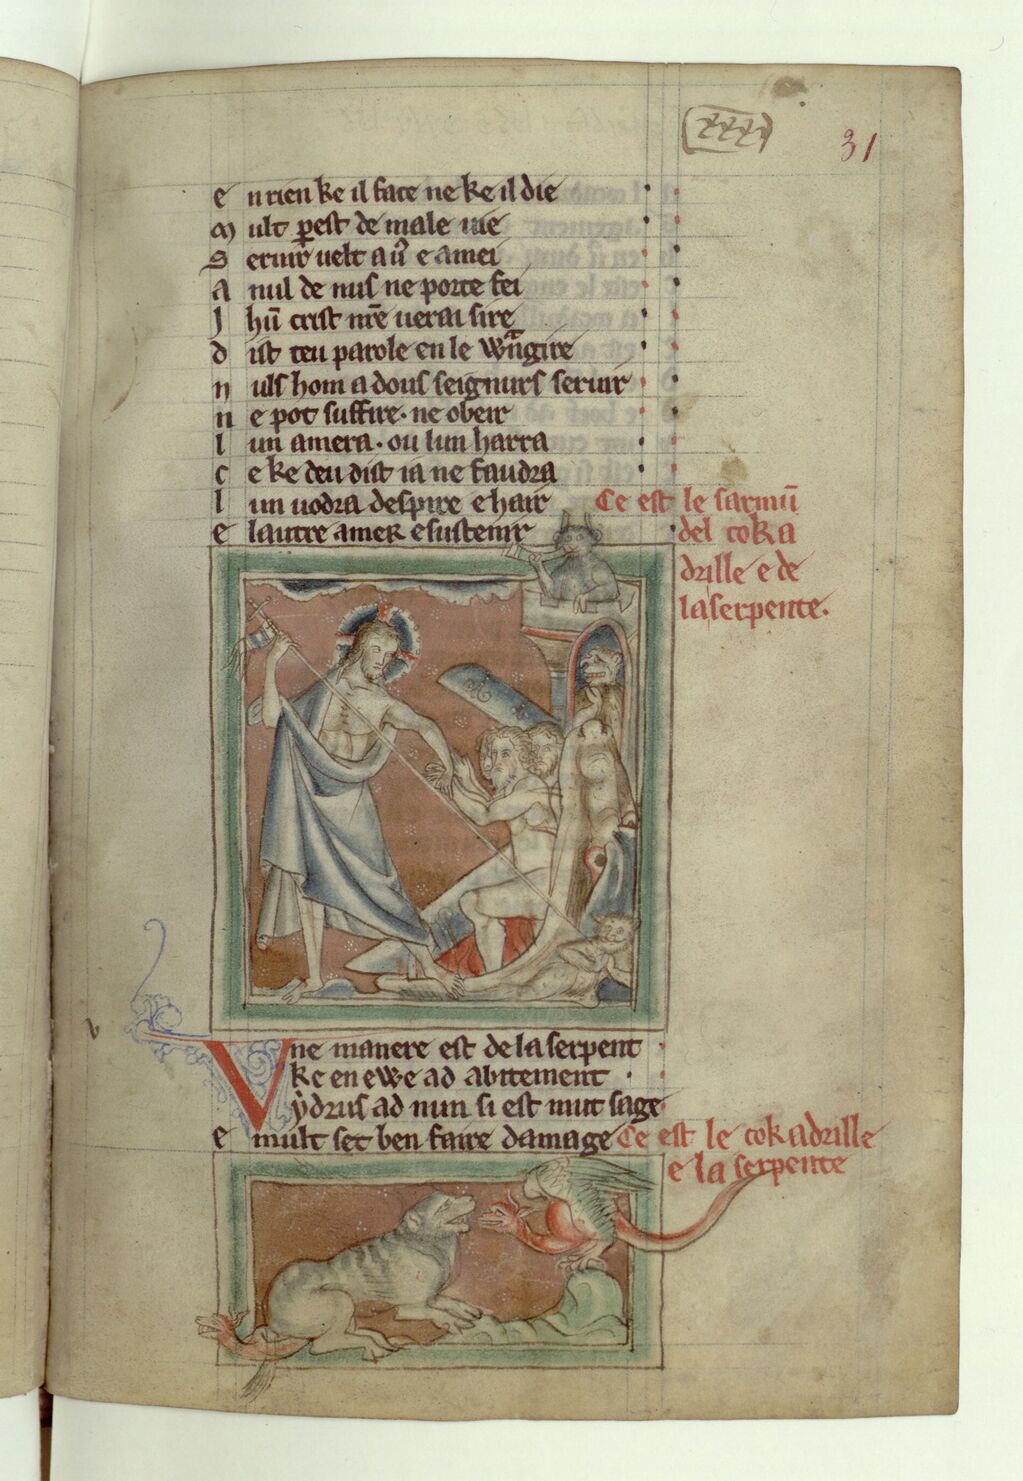 31
e n rien ke il face ne ke il die
m ult p est de male uie
S eruir uelt a u e amei
A nul de nus ne porte fei
J hu crist nre uerai sire
d ist ceu parole en le wangire
n uls hom a dous seignurs seruir
n e pot suffire. ne obeir
l un amera. ou lun harra
c e ke deu dist ia ne faudra
l un uodra despire e hair
e lautre amer e sustenir
Ce est le sarmu
del coka
drille e de
la serpente.
Vne manere est de la serpent
ke en ewe ad abitement
ydrus ad nun si est mut sage
e mult set ben faire damage
Ce est le cokadrille
e la serpente